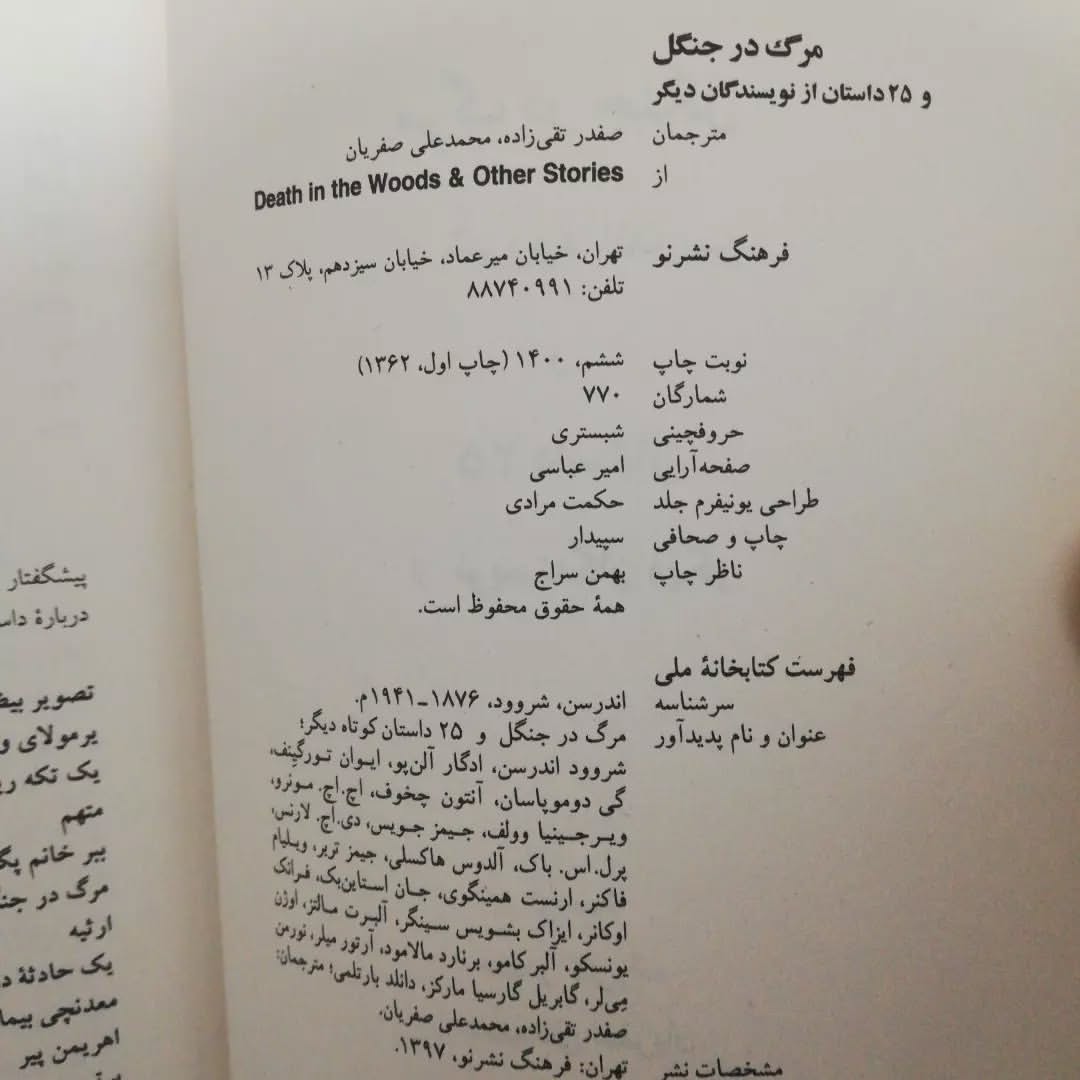 مرگ در جنگل
و ۲۵ داستان از نویسندگان دیگر
مترجمان صفدر تقی‌زاده، محمدعلی صفریان
از Death in the Woods & Other Stories
فرهنگ نشرنو تهران، خیابان میرعماد، خیابان سیزدهم، پلاک ۱۳
تلفن: ۸۸۷۴۰۹۹۱
نوبت چاپ ششم، ۱۴۰۰ (چاپ اول، ۱۳۶۲)
شمارگان ۷۷۰
حروفچینی شبستری
صفحه‌آرایی امیر عباسی
طراحی یونیفرم جلد حکمت مرادی
چاپ و صحافی سپیدار
ناظر چاپ بهمن سراج
همهٔ حقوق محفوظ است.
فهرست کتابخانهٔ ملی
سرشناسه اندرسن، شروود، ۱۸۷۶-۱۹۴۱م.
عنوان و نام پدیدآور مرگ در جنگل و ۲۵ داستان کوتاه دیگر؛
شروود اندرسن، ادگار آلن‌پو، ایوان تورگینف،
گی دوموپاسان، آنتون چخوف، اچ.اچ. مونرو،
ویرجینیا وولف، جیمز جویس، دی.اچ. لارنس،
پرل.اس. باک، آلدوس هاکسلی، جیمز تربر، ویلیام
فاکنر، ارنست همینگوی، جان استاین‌بک، فرانک
اوکانر، ایزاک بشویس سینگر، آلبرت مالتز، اوژن
یونسکو، آلبر کامو، برنارد مالامود، آرتور میلر، نورمن
می‌لر، گابریل گارسیا مارکز، دانلد بارتلمی؛ مترجمان:
صفدر تقی‌زاده، محمدعلی صفریان.
مشخصات نشر تهران: فرهنگ نشرنو، ۱۳۹۷.
پیشگفتار
دربارهٔ
تصویر
یرمولای و
یک تکه
متهم
پیر خانم
مرگ در
ارثیه
یک حادثهٔ
معدنچی
اهریمن پیر